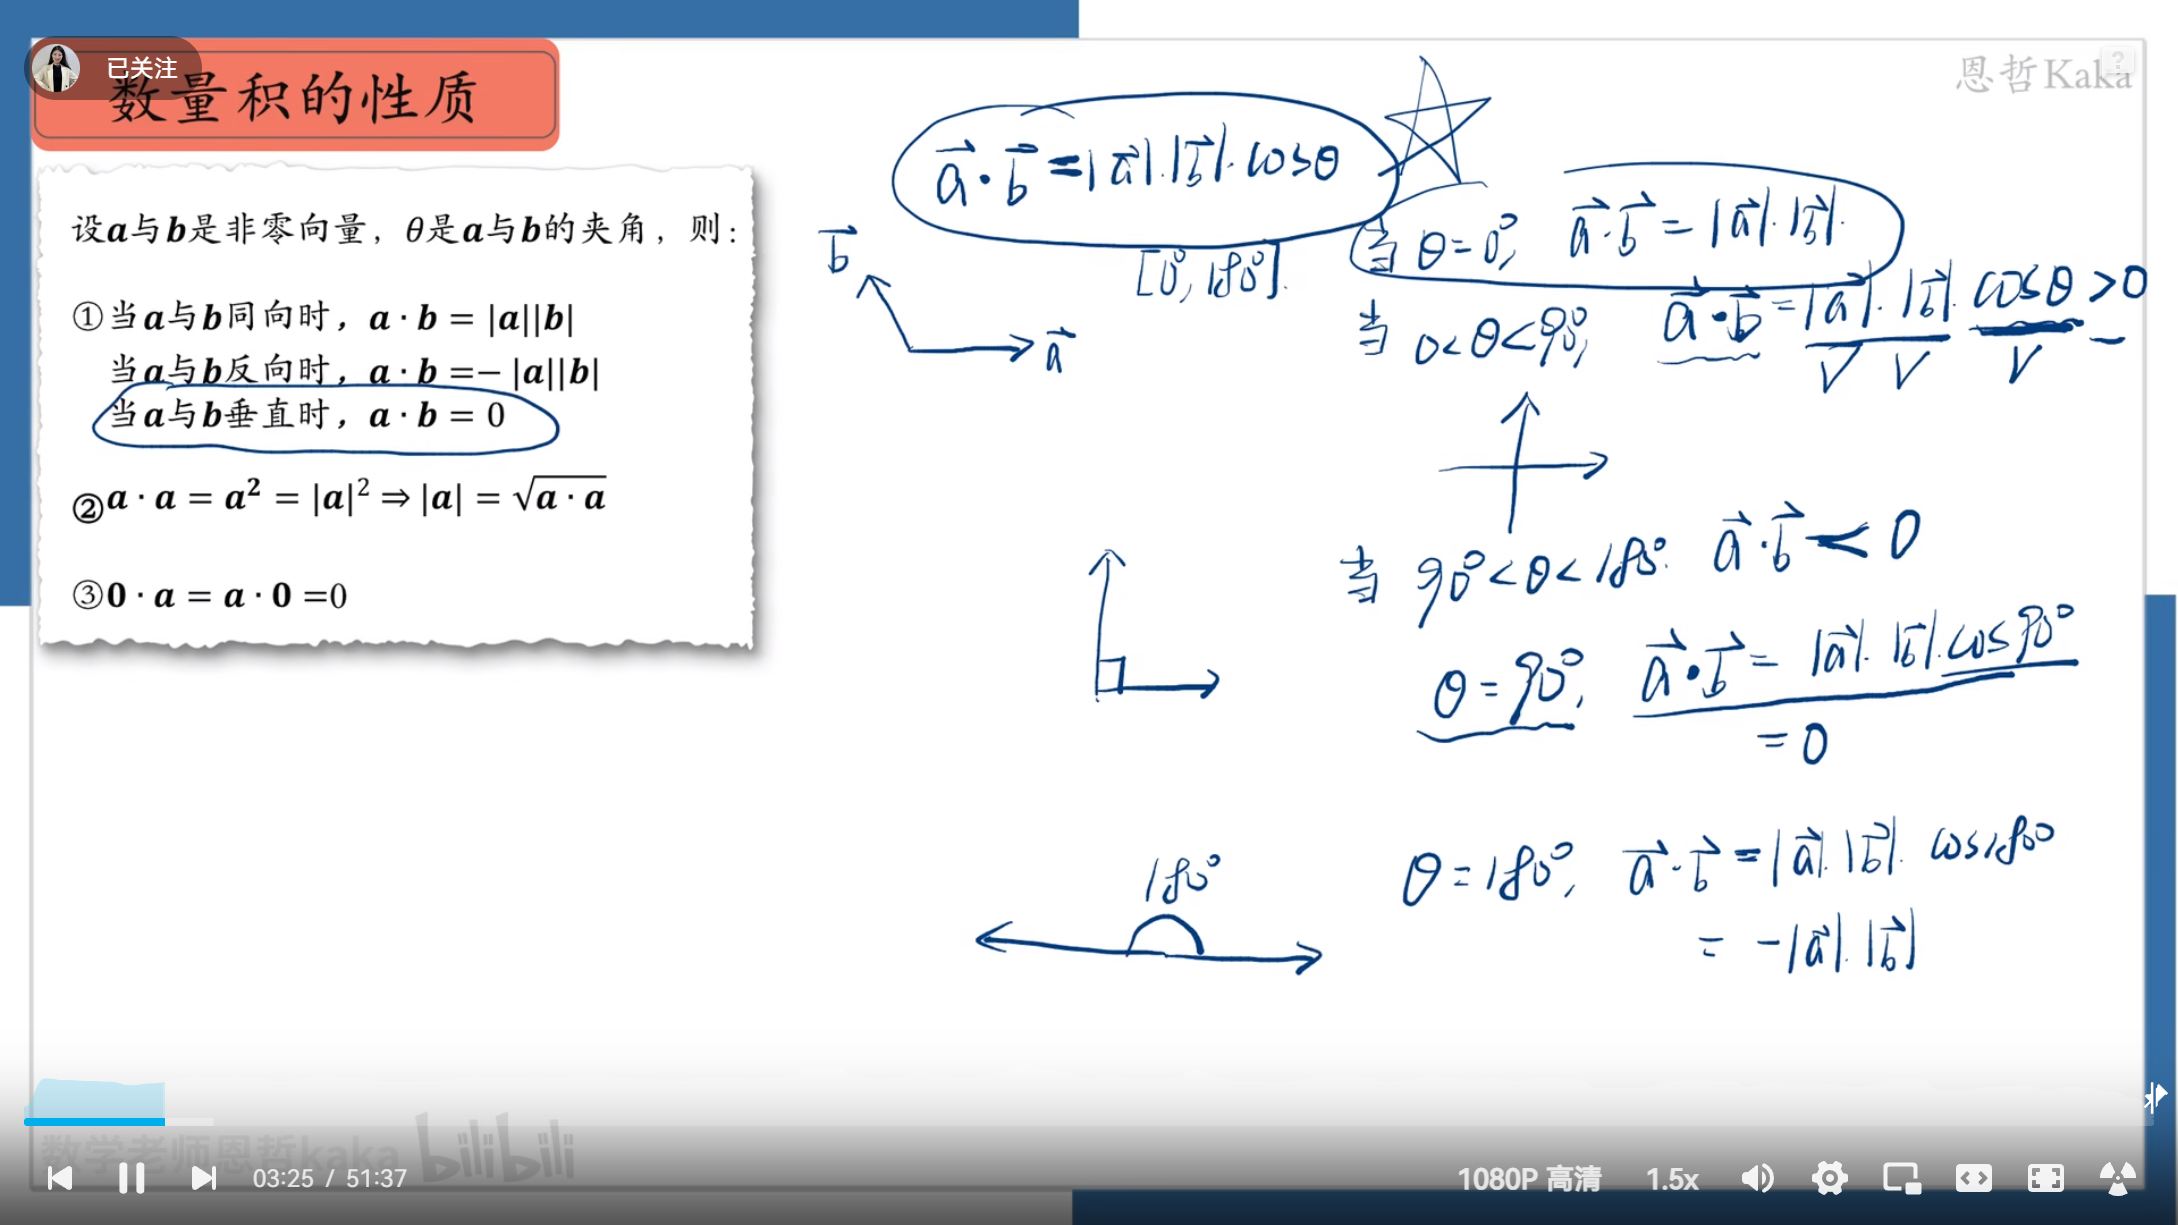 已关注
数量积的性质
恩哲Kaka
?
设a与b是非零向量，θ是a与b的夹角，则：
①当a与b同向时，a · b = |a||b|
当a与b反向时，a · b =− |a||b|
当a与b垂直时，a · b = 0
②a · a = a² = |a|² ⇒ |a| = √(a · a)
③0 · a = a · 0 =0
a⃗·b⃗=|a⃗|·|b⃗|·cosθ
[0°, 180°].
b⃗
a⃗
当 θ=0°, a⃗·b⃗=|a⃗|·|b⃗|.
当 0<θ<90°, a⃗·b⃗=|a⃗|·|b⃗| cosθ>0
当 90°<θ<180°. a⃗·b⃗<0
θ=90°, a⃗·b⃗=|a⃗|·|b⃗|·cos90°
=0
180°
θ=180°, a⃗·b⃗=|a⃗|·|b⃗|·cos180°
= −|a⃗|·|b⃗|
数学老师恩哲kaka bilibili
03:25 / 51:37
1080P 高清 1.5x